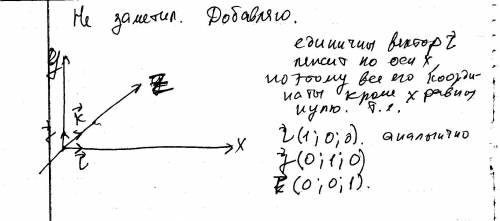 Не заметил. Добавляю.
единичны вектор i
лежит по оси x,
поэтому все его коорди-
наты кроме x равны
нулю. Т.е.
i (1; 0; 0). аналогично
j (0; 1; 0)
k (0; 0; 1).
y
z
k
j
i
x